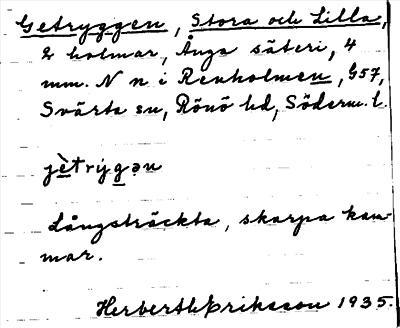 Getryggen, Stora och Lilla,
2 holmar, Ånga säteri, 4
mm. N n i Renholmen, G57,
Svärta sn, Rönö hd, Söderm. l.
jètrygən
Långsträckta, skarpa kam-
mar.
Herberth Eriksson 1935.